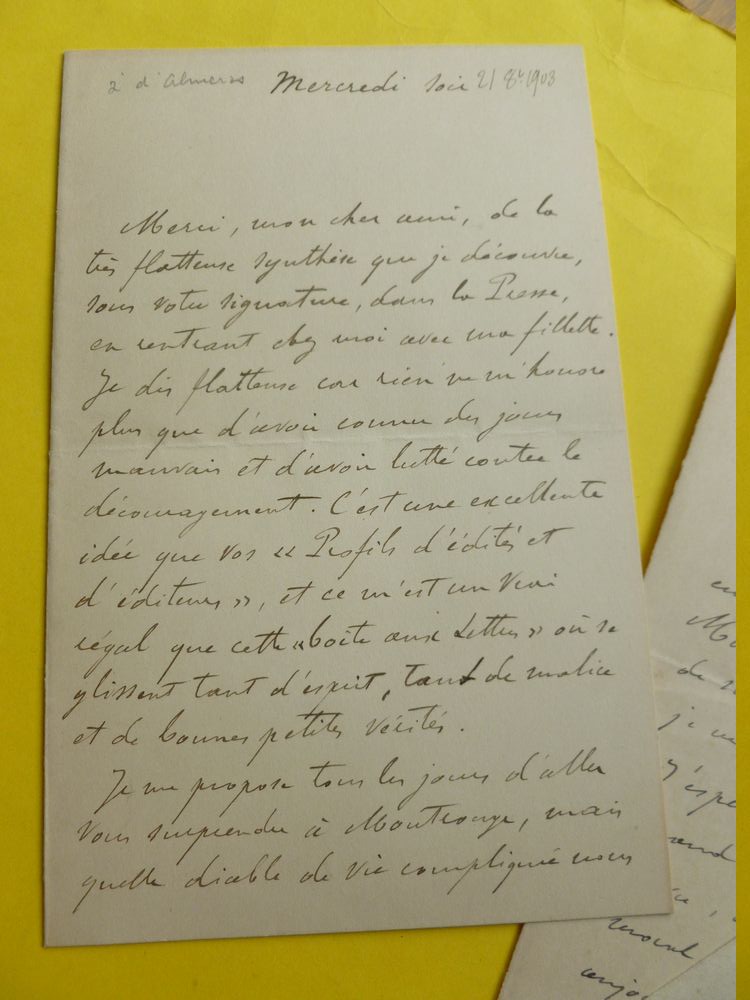 à d'Almeras Mercredi soir 21 8bre 1903
Merci, mon cher ami, de la
très flatteuse synthèse que je découvre,
sous votre signature, dans la Presse,
en rentrant chez moi avec ma fillette.
Je dis flatteuse car rien ne m'honore
plus que d'avoir connu des jours
mauvais et d'avoir lutté contre le
découragement. C'est une excellente
idée que vos « Profils d'édités et
d'éditeurs », et ce m'est un vrai
régal que cette « boîte aux Lettres » où se
glissent tant d'esprit, tant de malice
et de bonnes petites vérités.
Je me propose tous les jours d'aller
vous surprendre à Montrouge, mais
quelle diable de vie compliquée nous
en
de
je
j'espè